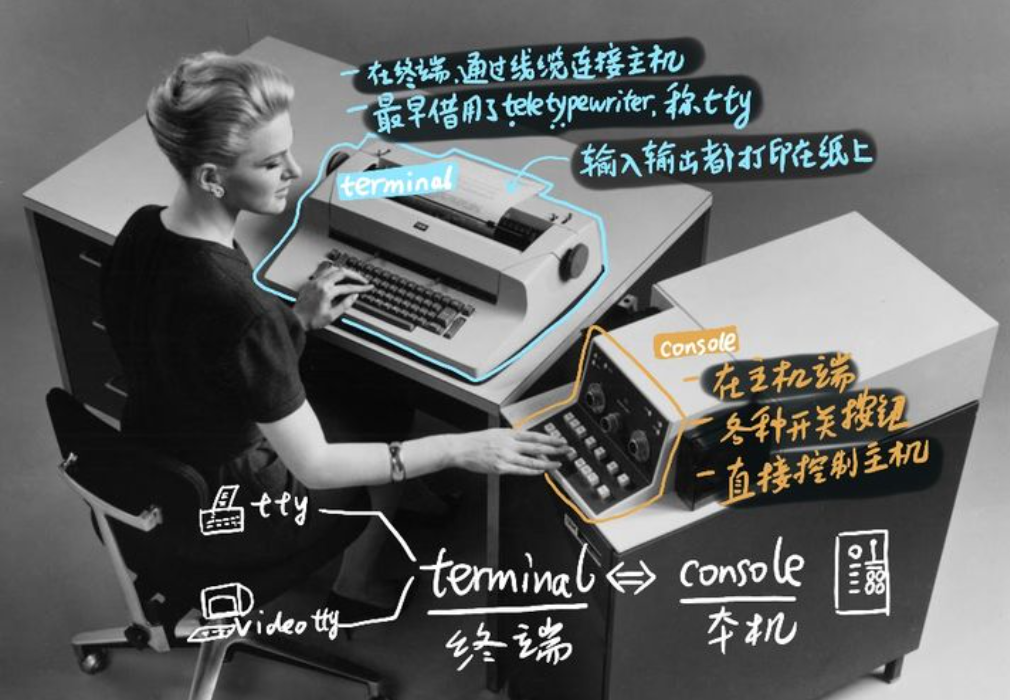 - 在终端、通过线缆连接主机
- 最早借用了teletypewriter,称tty
输入输出都打印在纸上
terminal
console
- 在主机端
- 各种开关按钮
- 直接控制主机
tty
videotty
terminal ⇔ console
终端
本机